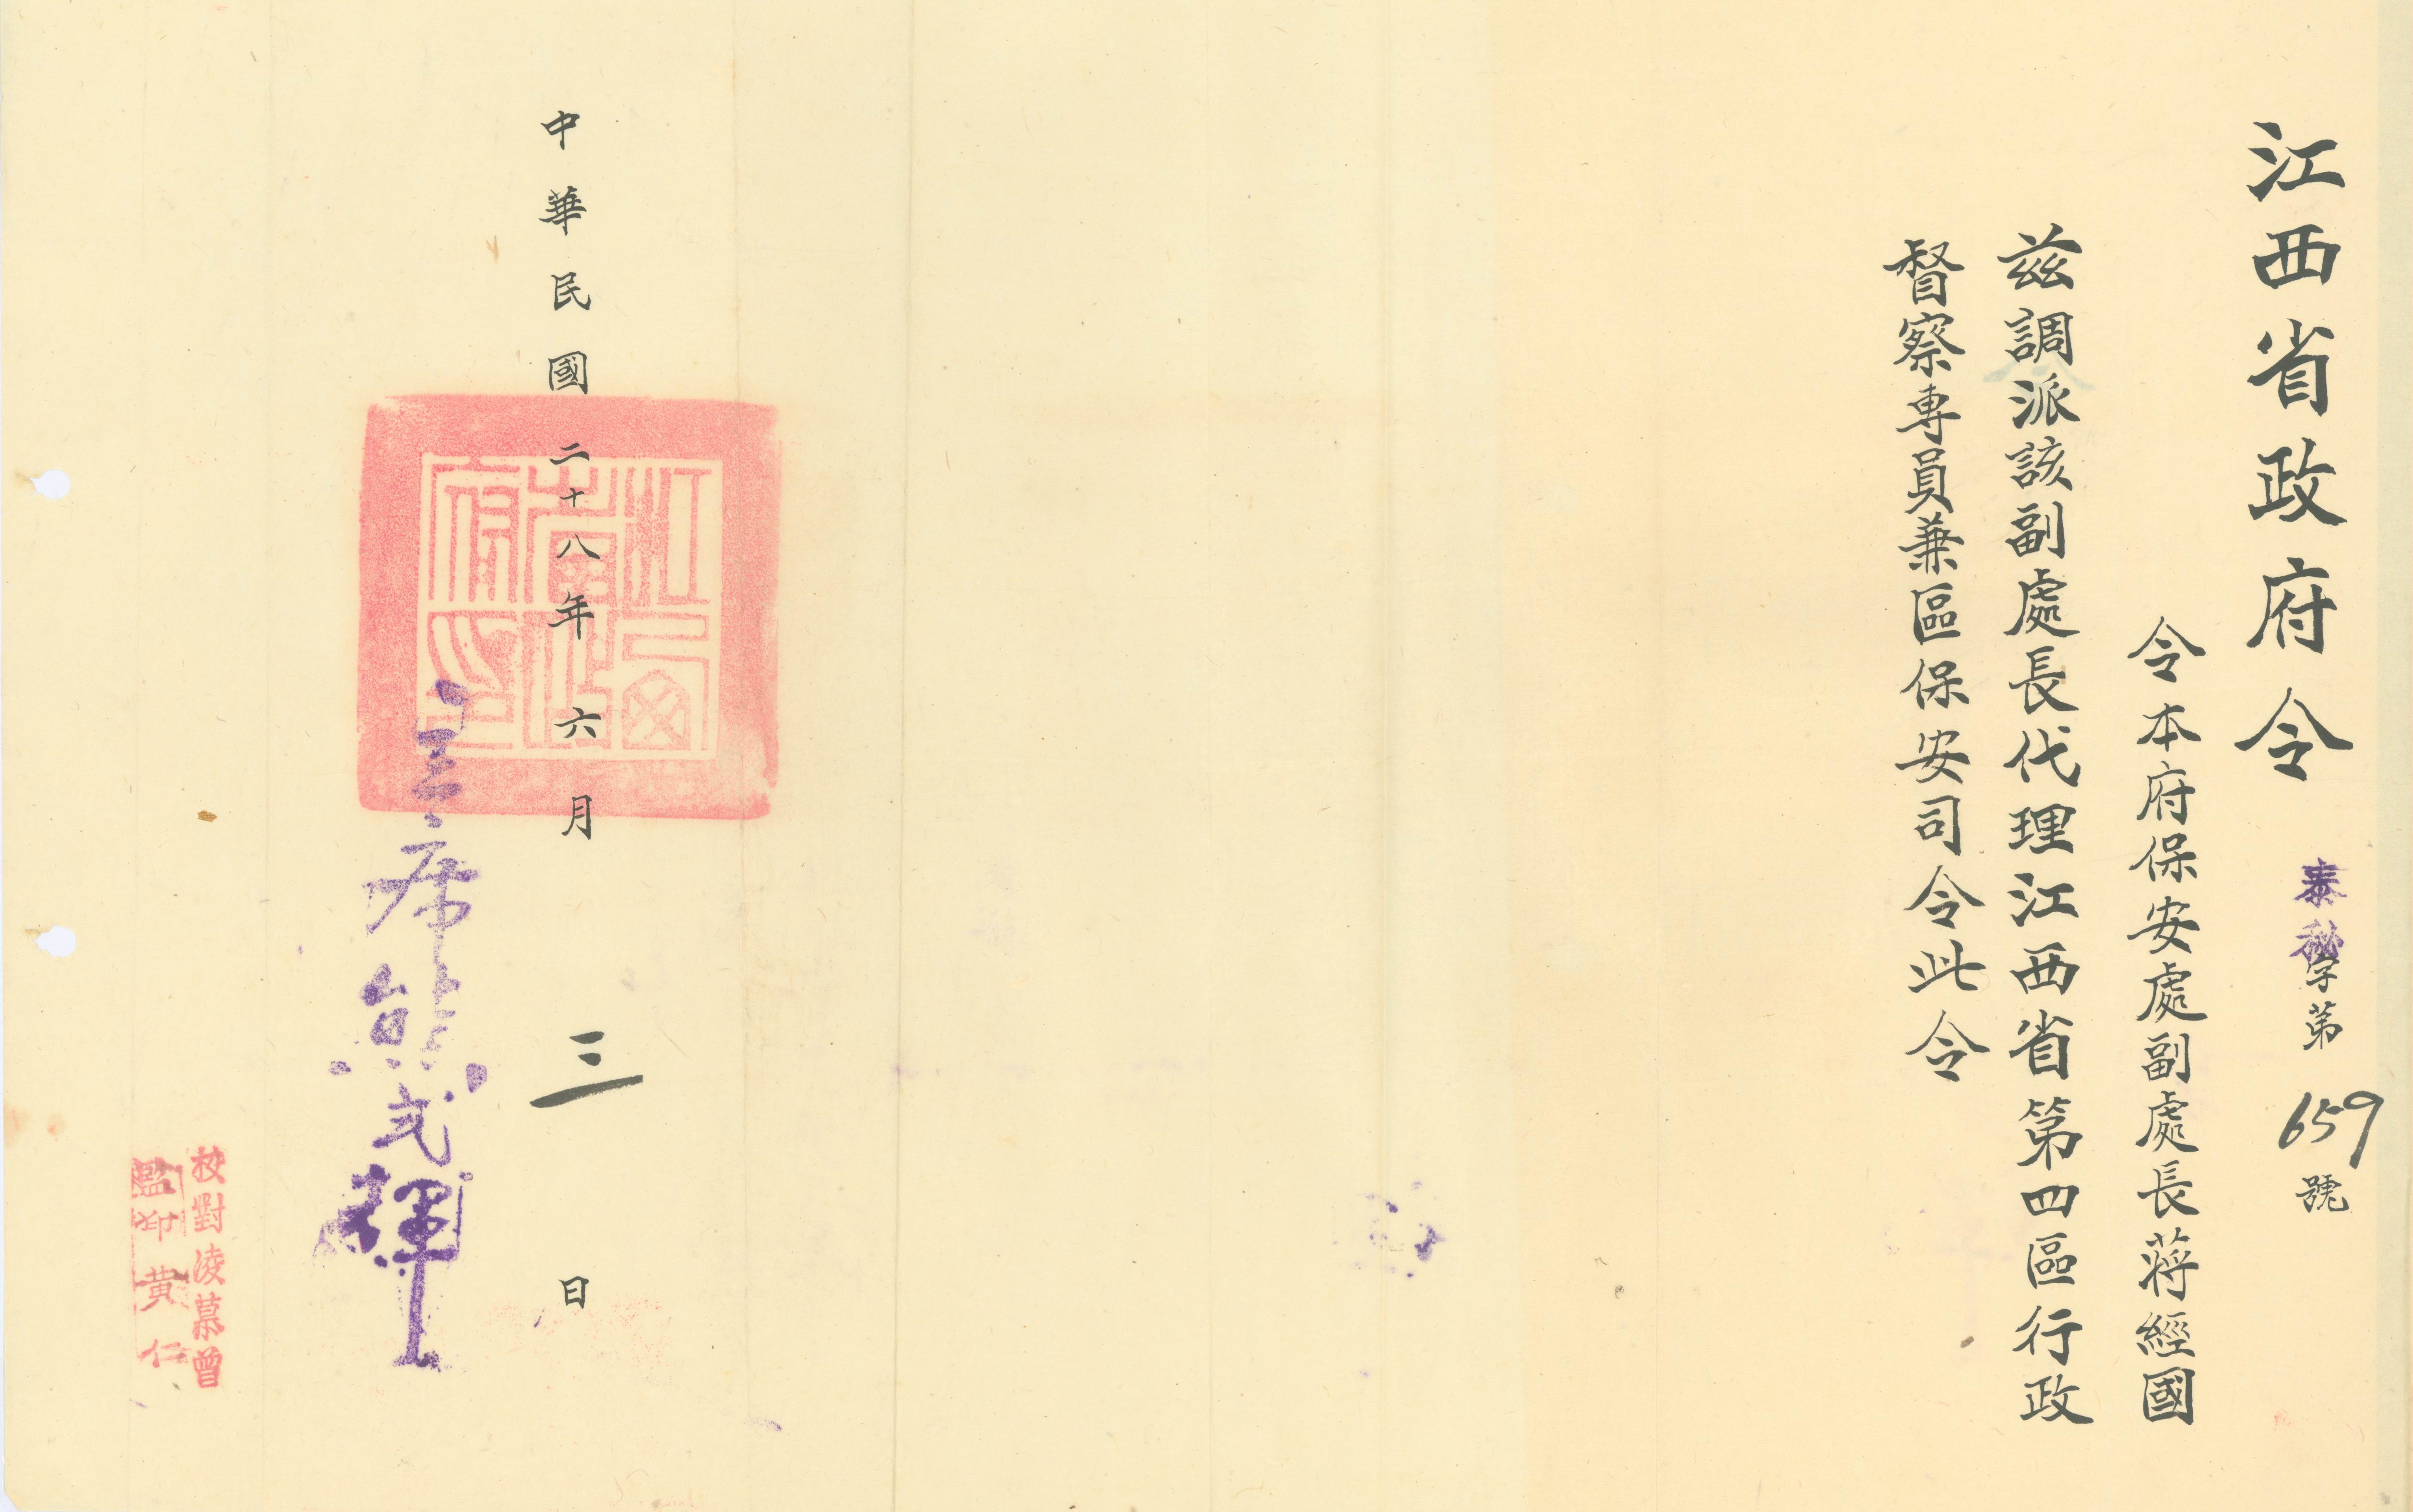 江西省政府令
泰秘字第659號
令本府保安處副處長蔣經國
茲調派該副處長代理江西省第四區行政
督察專員兼區保安司令此令
江西省政府印
中華民國二十八年六月三日
主席熊式輝
校對凌慕曾
監印黃仁